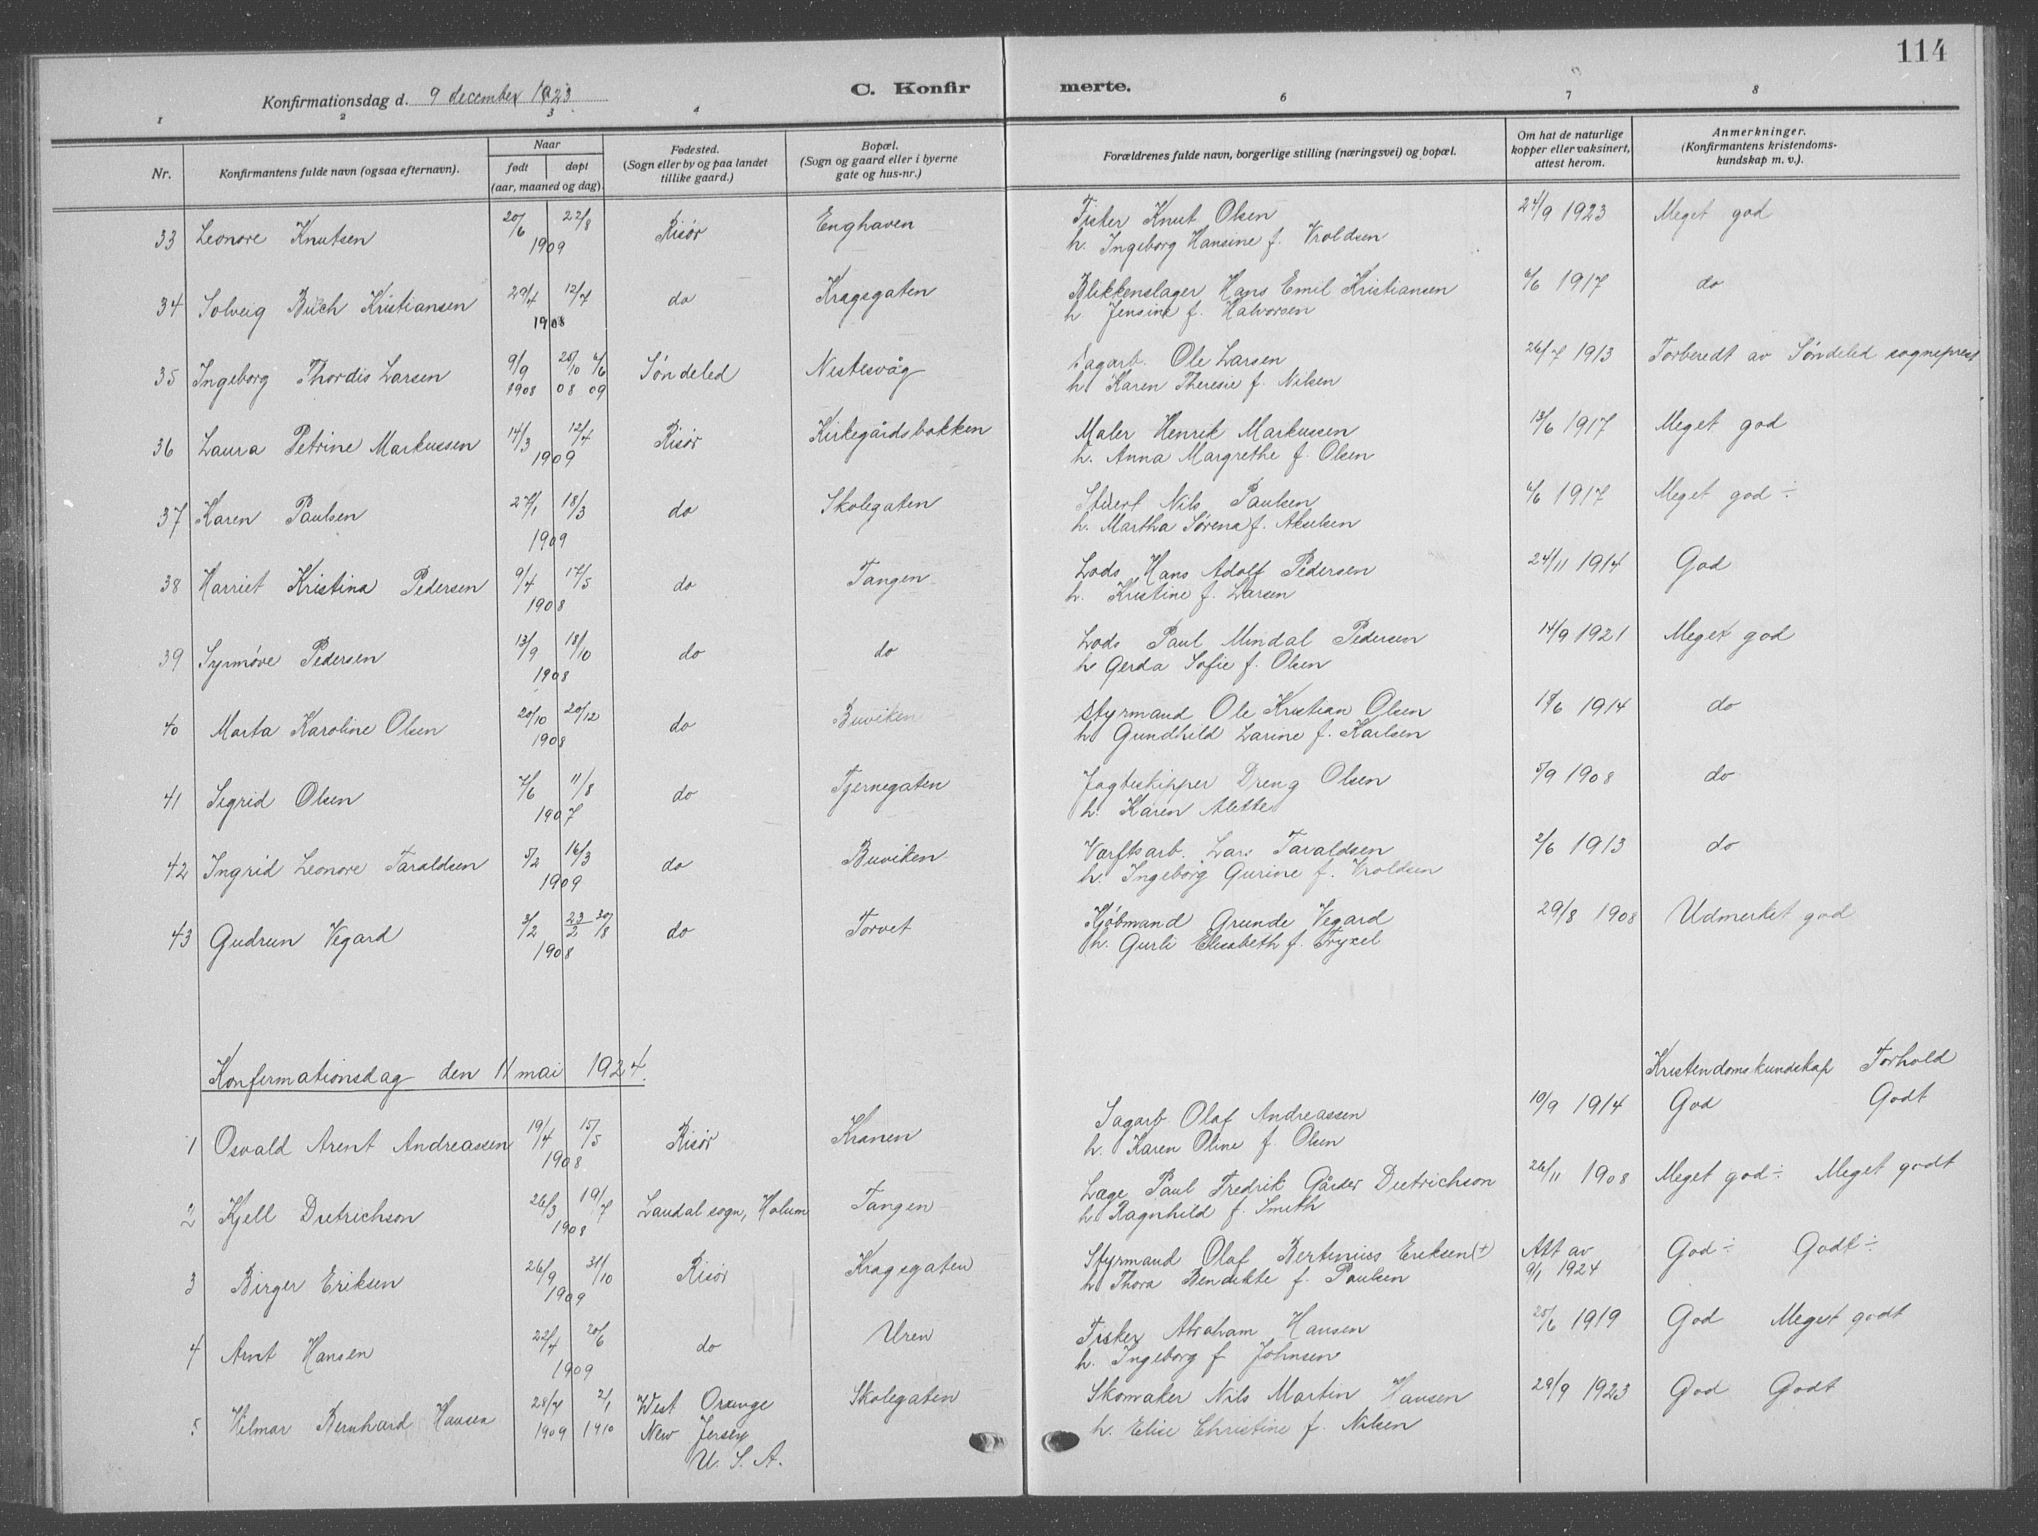 114
Konfirmationsdag d. 9 december 1923
C. Konfirmerte.
1 2 3 4 6 7 8
Nr. Konfirmantens fulde navn (ogsaa efternavn). Naar født døpt (aar, maaned og dag). Fødested. (Sogn eller by og paa landet tillike gaard.) Bopæl. (Sogn og gaard eller i byerne gate og hus-nr.) Forældrenes fulde navn, borgerlige stilling (næringsvei) og bopæl. Om hat de naturlige kopper eller vaksinert, attest herom. Anmerkninger. (Konfirmantens kristendoms-kundskap m. v.).
33 Leonore Knutsen 20/6 22/8 1909 Risør Enghaven Fisker Knut Olsen 24/9 1923 Meget god
h. Ingeborg Hansine f. Vroldsen
34 Solveig Buch Kristiansen 29/4 12/7 1908 do Kragsgaten Blikkenslager Hans Emil Kristiansen 6/6 1917 do
h. Jensine f. Halvorsen
35 Ingeborg Thordis Larsen 9/9 1908 25/10 08 6/6 09 Søndeled Nestesvåg Sagarb. Ole Larsen 26/7 1913 Forberedt av Søndeled sogneprest
h. Karen Theresie f. Nilsen
36 Laura Petrine Markussen 14/3 12/4 1909 Risør Kirkegårdsbakken Maler Henrik Markussen 13/6 1917 Meget god
h. Anna Margrethe f. Olsen
37 Karen Paulsen 27/1 18/3 1909 do Skolegaten Stuert Nils Paulsen 6/6 1917 Meget god ÷
h. Martha Sørena f. Akselsen
38 Harriet Kristina Pedersen 9/4 17/5 1908 do Tangen Lods Hans Adolf Pedersen 24/11 1914 God
h. Kristine f. Larsen
39 Synnøve Pedersen 13/9 18/10 1908 do do Lods Paul Mindal Pedersen 14/9 1921 Meget god
h. Gerda Sofie f. Olsen
40 Marta Karoline Olsen 20/10 20/12 1908 do Buviken Styrmand Ole Kristian Olsen 1914 do
h. Gundhild Larine f. Karlsen
41 Sigrid Olsen 7/6 11/8 1907 do Tjernegaten Jagteskipper Dreng Olsen 5/9 1908 do
h. Karen Alette
42 Ingrid Leonore Taraldsen 5/2 16/3 1909 do Buviken Værftsarb. Lars Taraldsen 2/6 1913 do
h. Ingeborg Gurine f. Vroldsen
43 Gudrun Vegard 3/2 23/2 30/8 1908 do Torvet Kjøbmand Grunde Vegard 29/8 1908 Udmerket god
h. Gurli Elisabeth f. Fryxel
Konfirmationsdag den 11 mai 1924. Kristendomskundskap Forhold
1 Osvald Arent Andreassen 19/4 15/5 1908 Risør Kranen Sagarb Olaf Andreassen 10/9 1914 God Godt
h. Karen Oline f. Olsen
2 Kjell Dietrichson 26/3 19/7 1908 Laudal sogn, Holum Tangen Læge Paul Fredrik Gårder Dietrichson 26/11 1908 Meget god ÷ Meget godt
h. Ragnhild f. Smith
3 Birger Eriksen 26/9 31/10 1909 Risør Kragsgaten Styrmand Olaf Bertinius Eriksen (+) Att av 9/1 1924 God ÷ Godt ÷
h. Thora Bendikte f. Paulsen
4 Arnt Hansen 22/4 20/6 1909 do Uren Fisker Abraham Hansen 25/6 1919 God Meget godt
h. Ingeborg f Johnsen
5 Hilmar Bernhard Hansen 28/7 1909 2/1 1910 West Orange New Jersey U. S. A. Skolegaten Skomaker Nils Martin Hansen 29/9 1923 God Godt
h. Elise Christine f. Nilsen